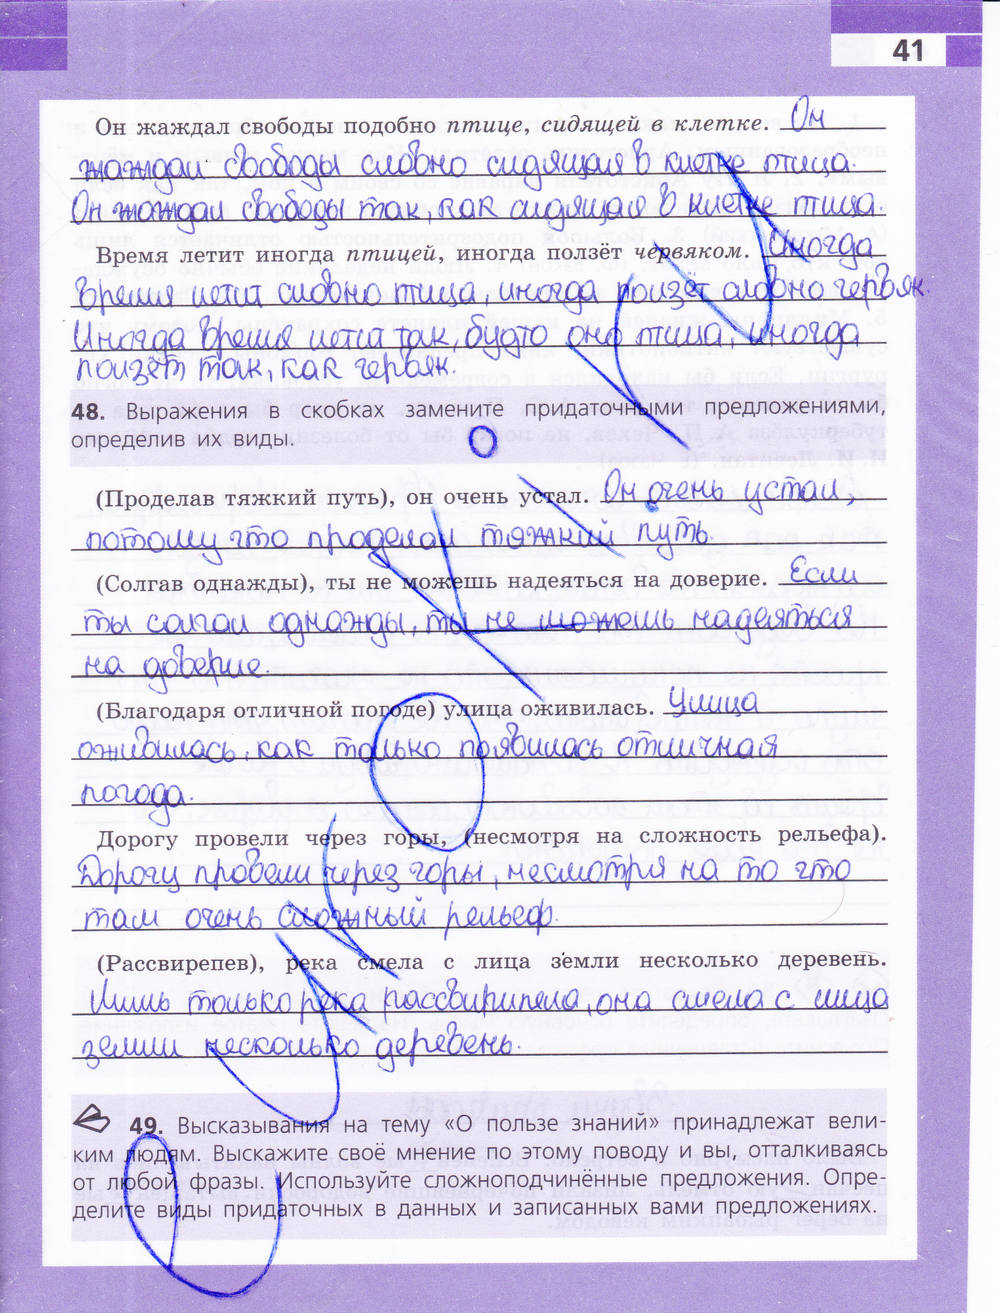 41
Он жаждал свободы подобно птице, сидящей в клетке. Он
жаждал свободы словно сидящая в клетке птица.
Он жаждал свободы так, как сидящая в клетке птица.
Время летит иногда птицей, иногда ползёт червяком. Иногда
время летит словно птица, иногда ползёт словно червяк.
Иногда время летит так, будто оно птица, иногда
ползёт так, как червяк.
48. Выражения в скобках замените придаточными предложениями,
определив их виды.
(Проделав тяжкий путь), он очень устал. Он очень устал,
потому что проделал тяжкий путь.
(Солгав однажды), ты не можешь надеяться на доверие. Если
ты солгал однажды, ты не можешь надеяться
на доверие.
(Благодаря отличной погоде) улица оживилась. Улица
оживилась, как только появилась отличная
погода.
Дорогу провели через горы, (несмотря на сложность рельефа).
Дорогу провели через горы, несмотря на то что
там очень сложный рельеф.
(Рассвирепев), река смела с лица земли несколько деревень.
Лишь только река рассвирипела, она смела с лица
земли несколько деревень.
49. Высказывания на тему «О пользе знаний» принадлежат вели-
ким людям. Выскажите своё мнение по этому поводу и вы, отталкиваясь
от любой фразы. Используйте сложноподчинённые предложения. Опре-
делите виды придаточных в данных и записанных вами предложениях.